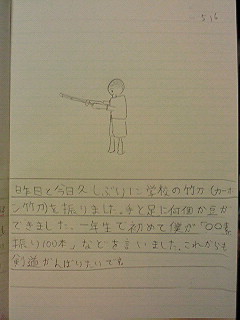 5/6
昨日と今日久しぶりに学校の竹刀(カーボ
ン竹刀)を振りました。手と足に何個か豆が
できました。一年生で初めて僕が「〇〇素
振り100本」などを言いました。これからも
剣道がんばりたいです。